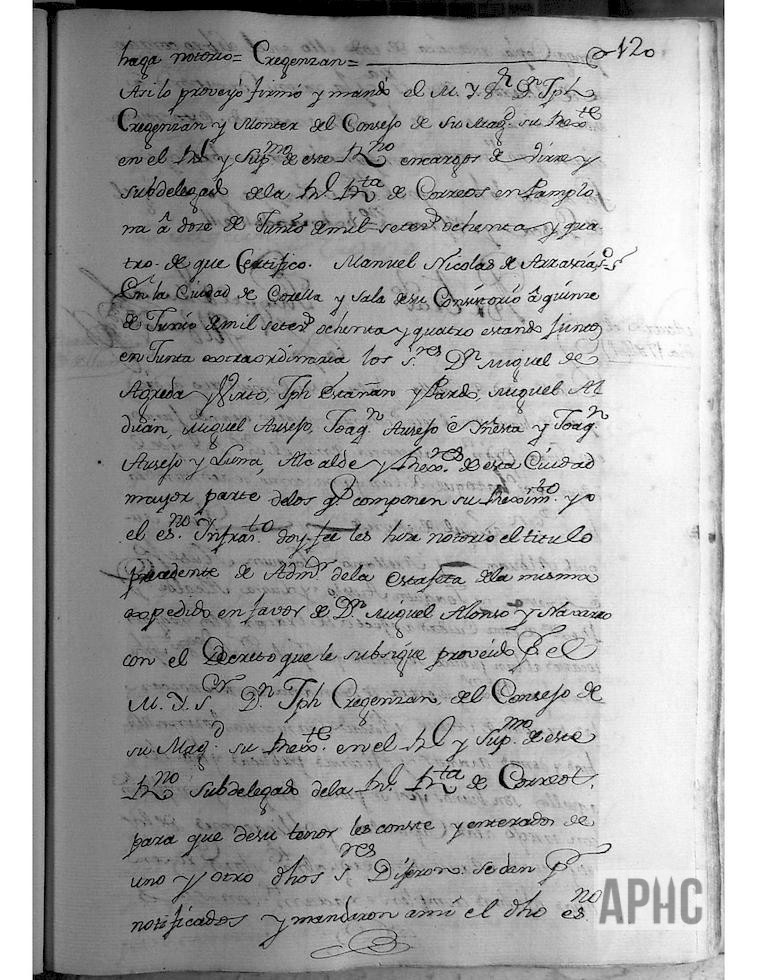 haga notorio= Cregenzan= 120
Asi lo proveyó firmó y mandó el M. Y. Sr. Dn. Jph
Cregenzan y Monter del Consejo de Su Magd. su Rexte
en el Rl. y Supmo. de este Rno encargos de Virrey
subdelegado de la Rl. Rta de Correos en Pamplo
na â doze de Junio de mil seteze. ochenta y qua
tro. de que Certifico. Manuel Nicolas de Arrastia, sso.
En la Ciudad de Corella y Sala de su Consistorio â quinze
de Junio de mil seteze. ochenta y quatro estando junto
en Junta extraordinaria los Sres. Dn. Miguel de
Agreda y Virto, Jph Escañan y Pardo, Miguel Al
duan, Miguel Auseso, Joaqn. Auseso è Yñesta y Joaqn.
Auseso y Luna, Alcalde y Rexres. de esta Ciudad
mayor parte de los qe. componen su Reximto. yo
el esno. Ynfrato. doy fee les hize notorio el titulo
precedente de Admor. de la estafeta de la misma
expedido en favor de Dn. Miguel Alonso y Navarro
con el Decreto que le subsigue proveido Pr. el
M. Y. Sr. Dn. Jph Cregenzan del Consejo de
su Magd. su Rexte. en el Rl. y Supmo. de este
Rno Subdelegado de la Rl. Rta de Correos,
para que de su tenor les conste y enterados de
uno y otro dhos Sres. Dijeron: se dan Pr.
notificados y mandaron ami el dho esno
APHC